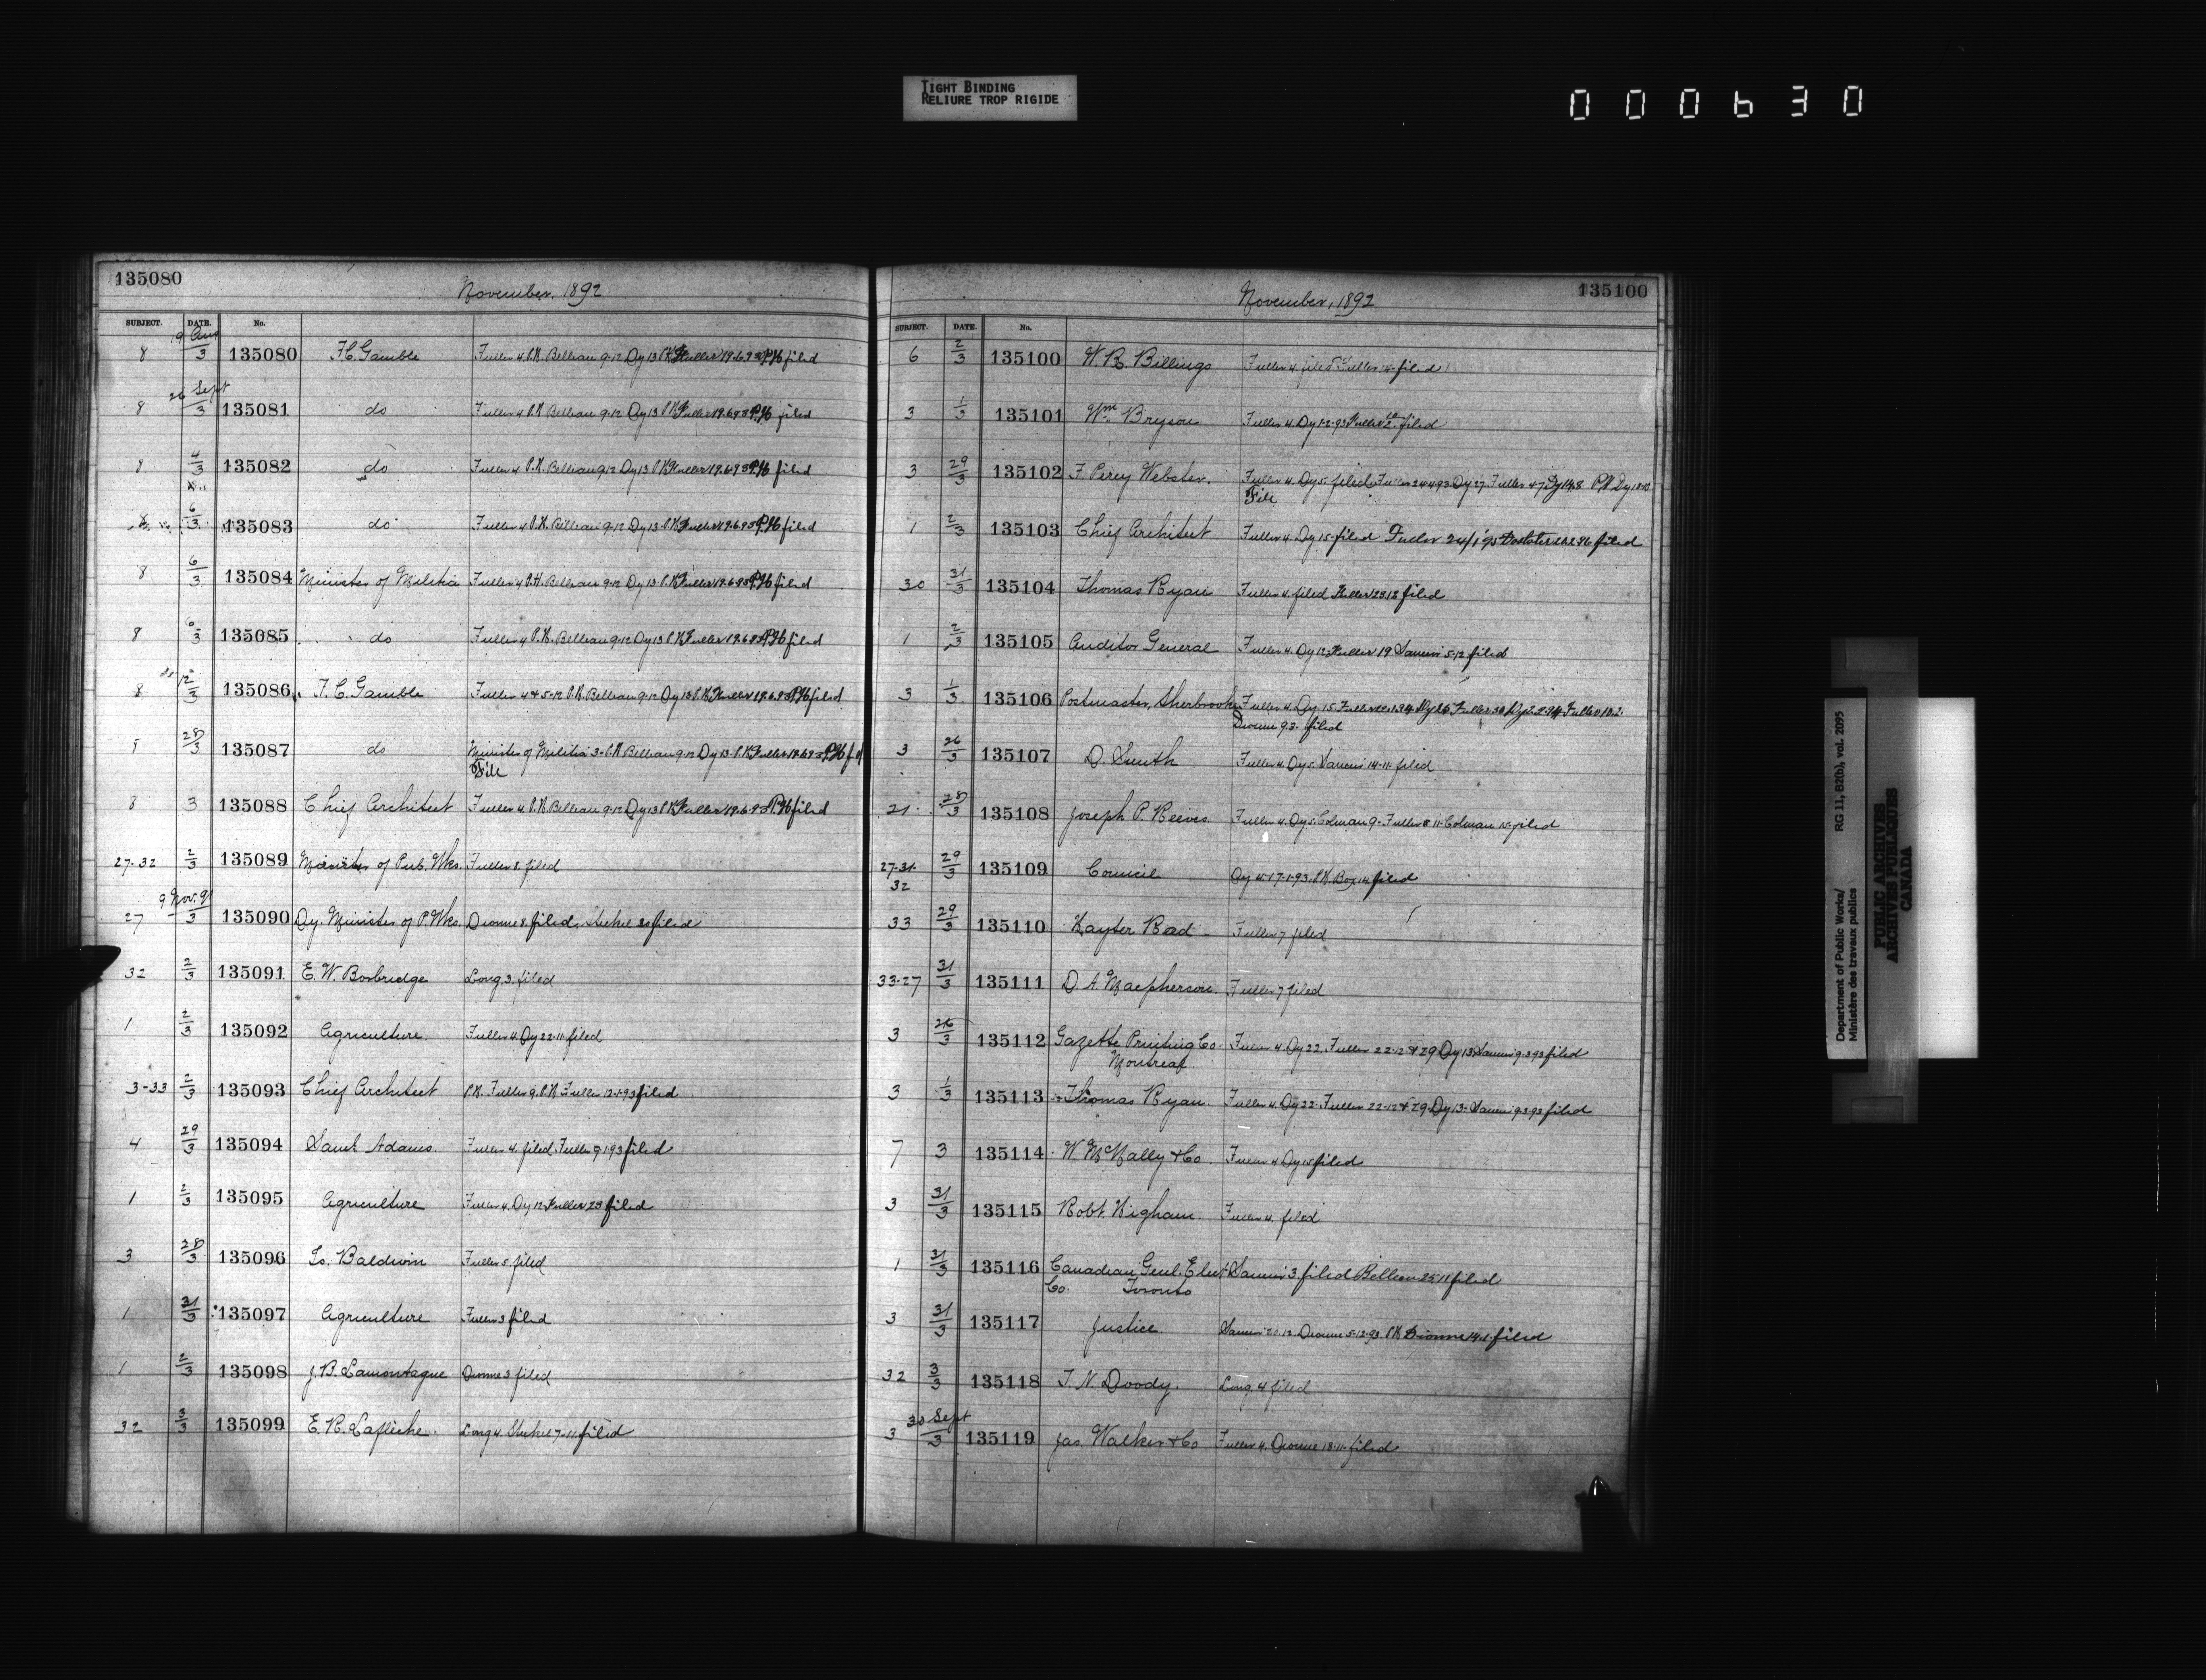 TIGHT BINDING
RELIURE TROP RIGIDE
000630
135080
November, 1892
SUBJECT. DATE. No.
8 19 Aug/3 135080 F.C. Gamble Fuller 4 P.H. Belleau 9-12 Dy 13 P.H. Fuller 19.6.93 P.H. filed
8 26 Sept/3 135081 do Fuller 4 P.H. Belleau 9-12 Dy 13 P.H. Fuller 19.6.93 P.H. filed
8 4/3 135082 do Fuller 4 P.H. Belleau 9-12 Dy 13 P.H. Fuller 19.6.93 P.H. filed
8 6/3 135083 do Fuller 4 P.H. Belleau 9-12 Dy 13 P.H. Fuller 19.6.93 P.H. filed
8 6/3 135084 Minister of Militia Fuller 4 P.H. Belleau 9-12 Dy 13 P.H. Fuller 19.6.93 P.H. filed
8 6/3 135085 do Fuller 4 P.H. Belleau 9-12 Dy 13 P.H. Fuller 19.6.93 P.H. filed
8 12/3 135086 F.C. Gamble Fuller 4 & 5-12 P.H. Belleau 9-12 Dy 13 P.H. Fuller 19.6.93 P.H. filed
8 28/3 135087 do Minister of Militia 3 P.H. Belleau 9-12 Dy 13 P.H. Fuller 19.6.93 P.H.
File
8 3 135088 Chief Architect Fuller 4 P.H. Belleau 9-12 Dy 13 P.H. Fuller 19.6.93 P.H. filed
27-32 2/3 135089 Minister of Pub. Wks. Fuller 8. filed
27 9 Nov. 91/3 135090 Dy. Minister of P. Wks. Dionne 8. filed. Steckel 30 filed
32 2/3 135091 E. W. Boxbridge Long 3. filed
1 2/3 135092 Agriculture. Fuller 4 Dy 22-11 filed
3-33 2/3 135093 Chief Architect P.H. Fuller 9. P.H. Fuller 12-1-93 filed
4 29/3 135094 Saml. Adams. Fuller 4. filed. Fuller 9 1 93 filed
1 2/3 135095 Agriculture Fuller 4. Dy 12 Fuller 23 filed
3 28/3 135096 Ls. Baldwin Fuller 5 filed
1 31/3 135097 Agriculture Fuller 3 filed
1 2/3 135098 J. B. Lamontagne Dionne 3 filed
32 3/3 135099 E. R. Lafleche. Long 4. Steckel 7-11. filed
135100
November, 1892
SUBJECT. DATE. No.
6 2/3 135100 W. R. Billings Fuller 4. filed Fuller 14. filed
3 1/3 135101 Wm. Bryson Fuller 4. Dy 1-2-93 Fuller filed
3 29/3 135102 F Percy Webster. Fuller 4. Dy 5. filed. Fuller 24 4 93 Dy 27. Fuller 4-7 Dy 14.8 P.H. Dy
File
1 2/3 135103 Chief Architect Fuller 4 Dy 15. filed Fuller 24/1 95 filed
30 31/3 135104 Thomas Ryan Fuller 4. filed Fuller 23 12 filed
1 2/3 135105 Auditor General Fuller 4. Dy 12. Fuller 19 5-12 filed
3 1/3 135106 Postmaster, Sherbrooke Fuller 4. Dy 15 Fuller Dy 26 Fuller 30 Dy 2 2 94 Fuller
Dionne 9.3. filed
3 26/3 135107 D. Smith Fuller 4. Dy 5. 14-11. filed
21 28/3 135108 Joseph P. Reeves. Fuller 4. Dy 5. Colman 9. Fuller 8 11. Colman 15. filed
27-31- 29/3 135109 Council Dy 4. 17-1-93. P.H. Box 14 filed
32
33 29/3 135110 Hayter Reed Fuller 7 filed
33-27 31/3 135111 D. A. Macpherson. Fuller 7 filed
3 26/3 135112 Gazette Printing Co. Fuller 4. Dy 22. Fuller 22-12 & 29 Dy 13. 9.3 93 filed
Montreal
3 1/3 135113 Thomas Ryan Fuller 4. Dy 22. Fuller 22-12 & 29. Dy 13. 9.3.93 filed
7 3 135114 W. McNally & Co. Fuller 4 Dy 15 filed
3 31/3 135115 Robt. Higham. Fuller 4. filed
1 31/3 135116 Canadian Genl. Elect 3. filed Belleau 25-11 filed
Co. Toronto
3 31/3 135117 Justice. Dionne 5-12-93 P.H. Dionne 14.1. filed
32 3/3 135118 T. N. Doody. Long 4 filed
3 30 Sept/3 135119 Jas. Walker & Co Fuller 4. Dionne 18-11. filed
Department of Public Works/
Ministère des travaux publics
RG 11, B2(b), vol. 2095
PUBLIC ARCHIVES
ARCHIVES PUBLIQUES
CANADA